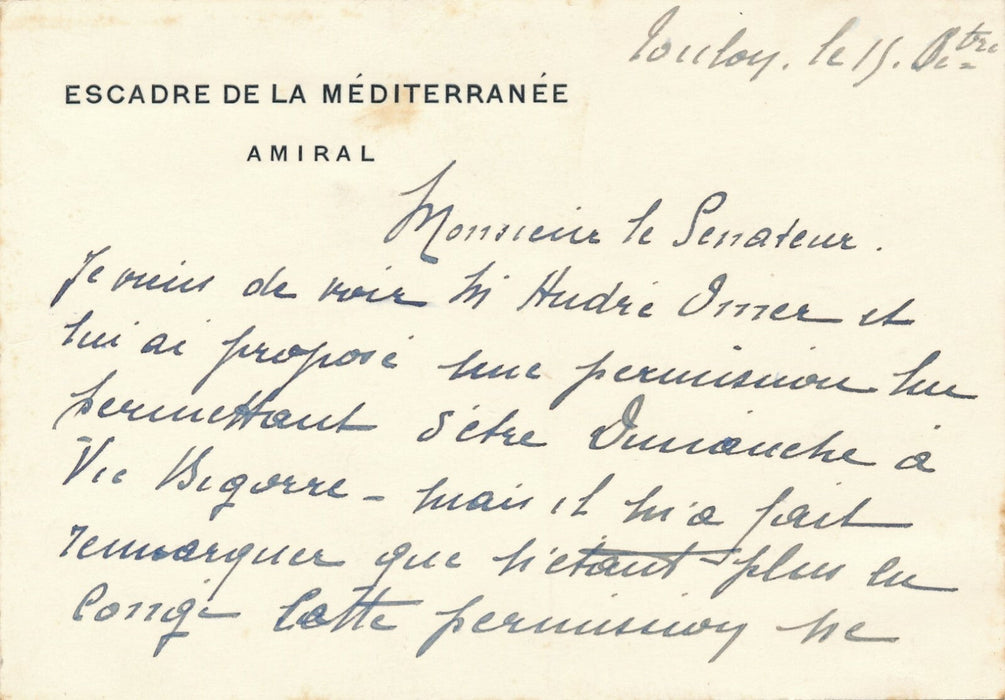 Toulon, le 15. Bre
ESCADRE DE LA MÉDITERRANÉE
AMIRAL
Monsieur le Senateur.
Je viens de voir M André Omer et
lui ai proposé une permission lui
permettant d'être Dimanche à
Vic Bigorre – mais il m'a fait
remarquer que n'étant plus en
Congé Cette permission ne